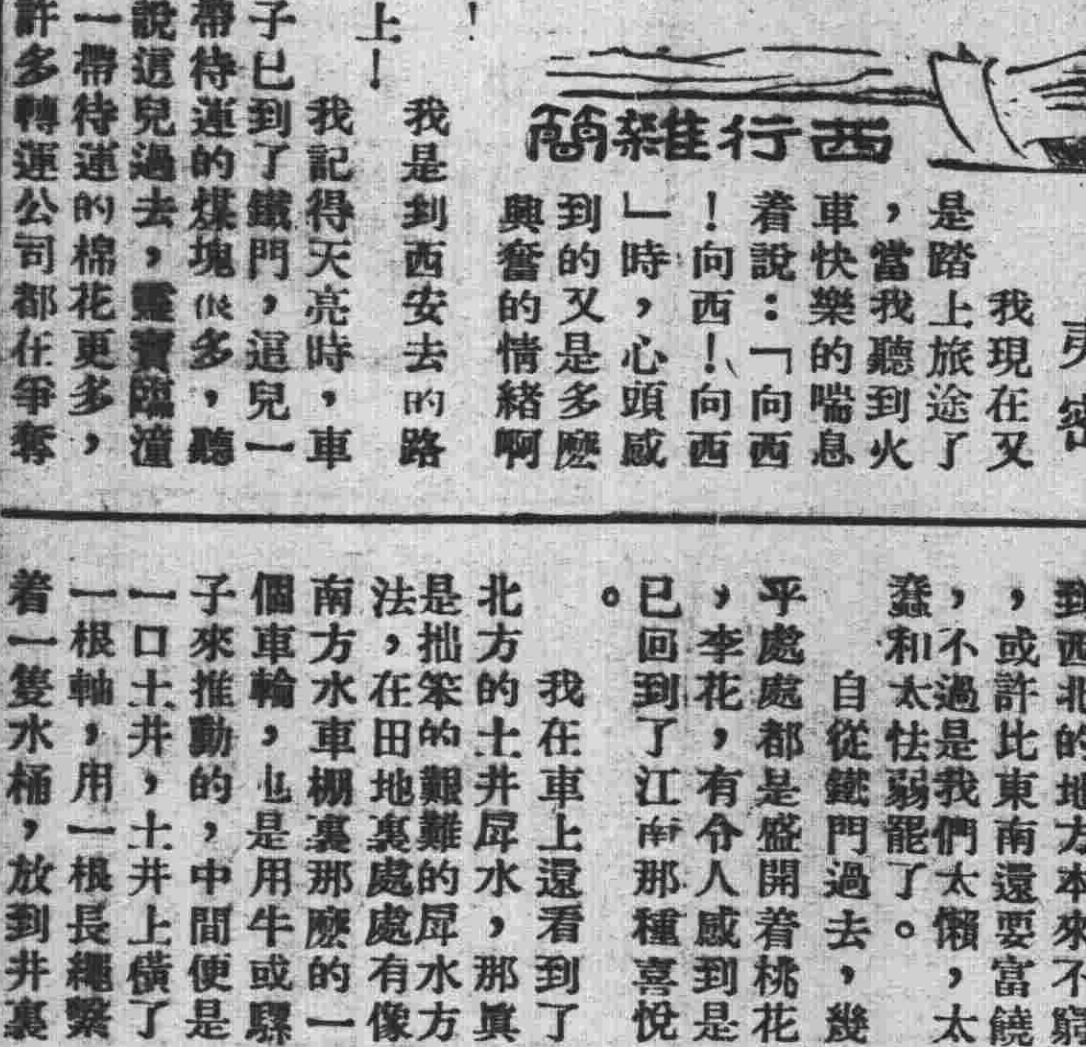 西行雜簡
我現在又
是踏上旅途了
，當我聽到火
車快樂的喘息
着說：「向西
！向西！向西
」時，心頭感
到的又是多麽
興奮的情緒啊
！
我是到西安去的路
上！
我記得天亮時，車
子已到了鐵門，這兒一
帶待運的煤塊很多，聽
說這兒過去，靈寶臨潼
一帶待運的棉花更多，
許多轉運公司都在爭奪
到西北的地方本來不窮
，或許比東南還要富饒
，不過是我們太懶，太
蠢和太怯弱罷了。
自從鐵門過去，幾
平處處都是盛開着桃花
，李花，有令人感到是
已回到了江南那種喜悅
。
我在車上還看到了
北方的土井戽水，那眞
是拙笨的艱難的戽水方
法，在田地裏處處有像
南方水車棚裏那麽的一
個車輪，也是用牛或騾
子來推動的，中間便是
一口土井，土井上橫了
一根軸，用一根長繩繫
着一隻水桶，放到井裏